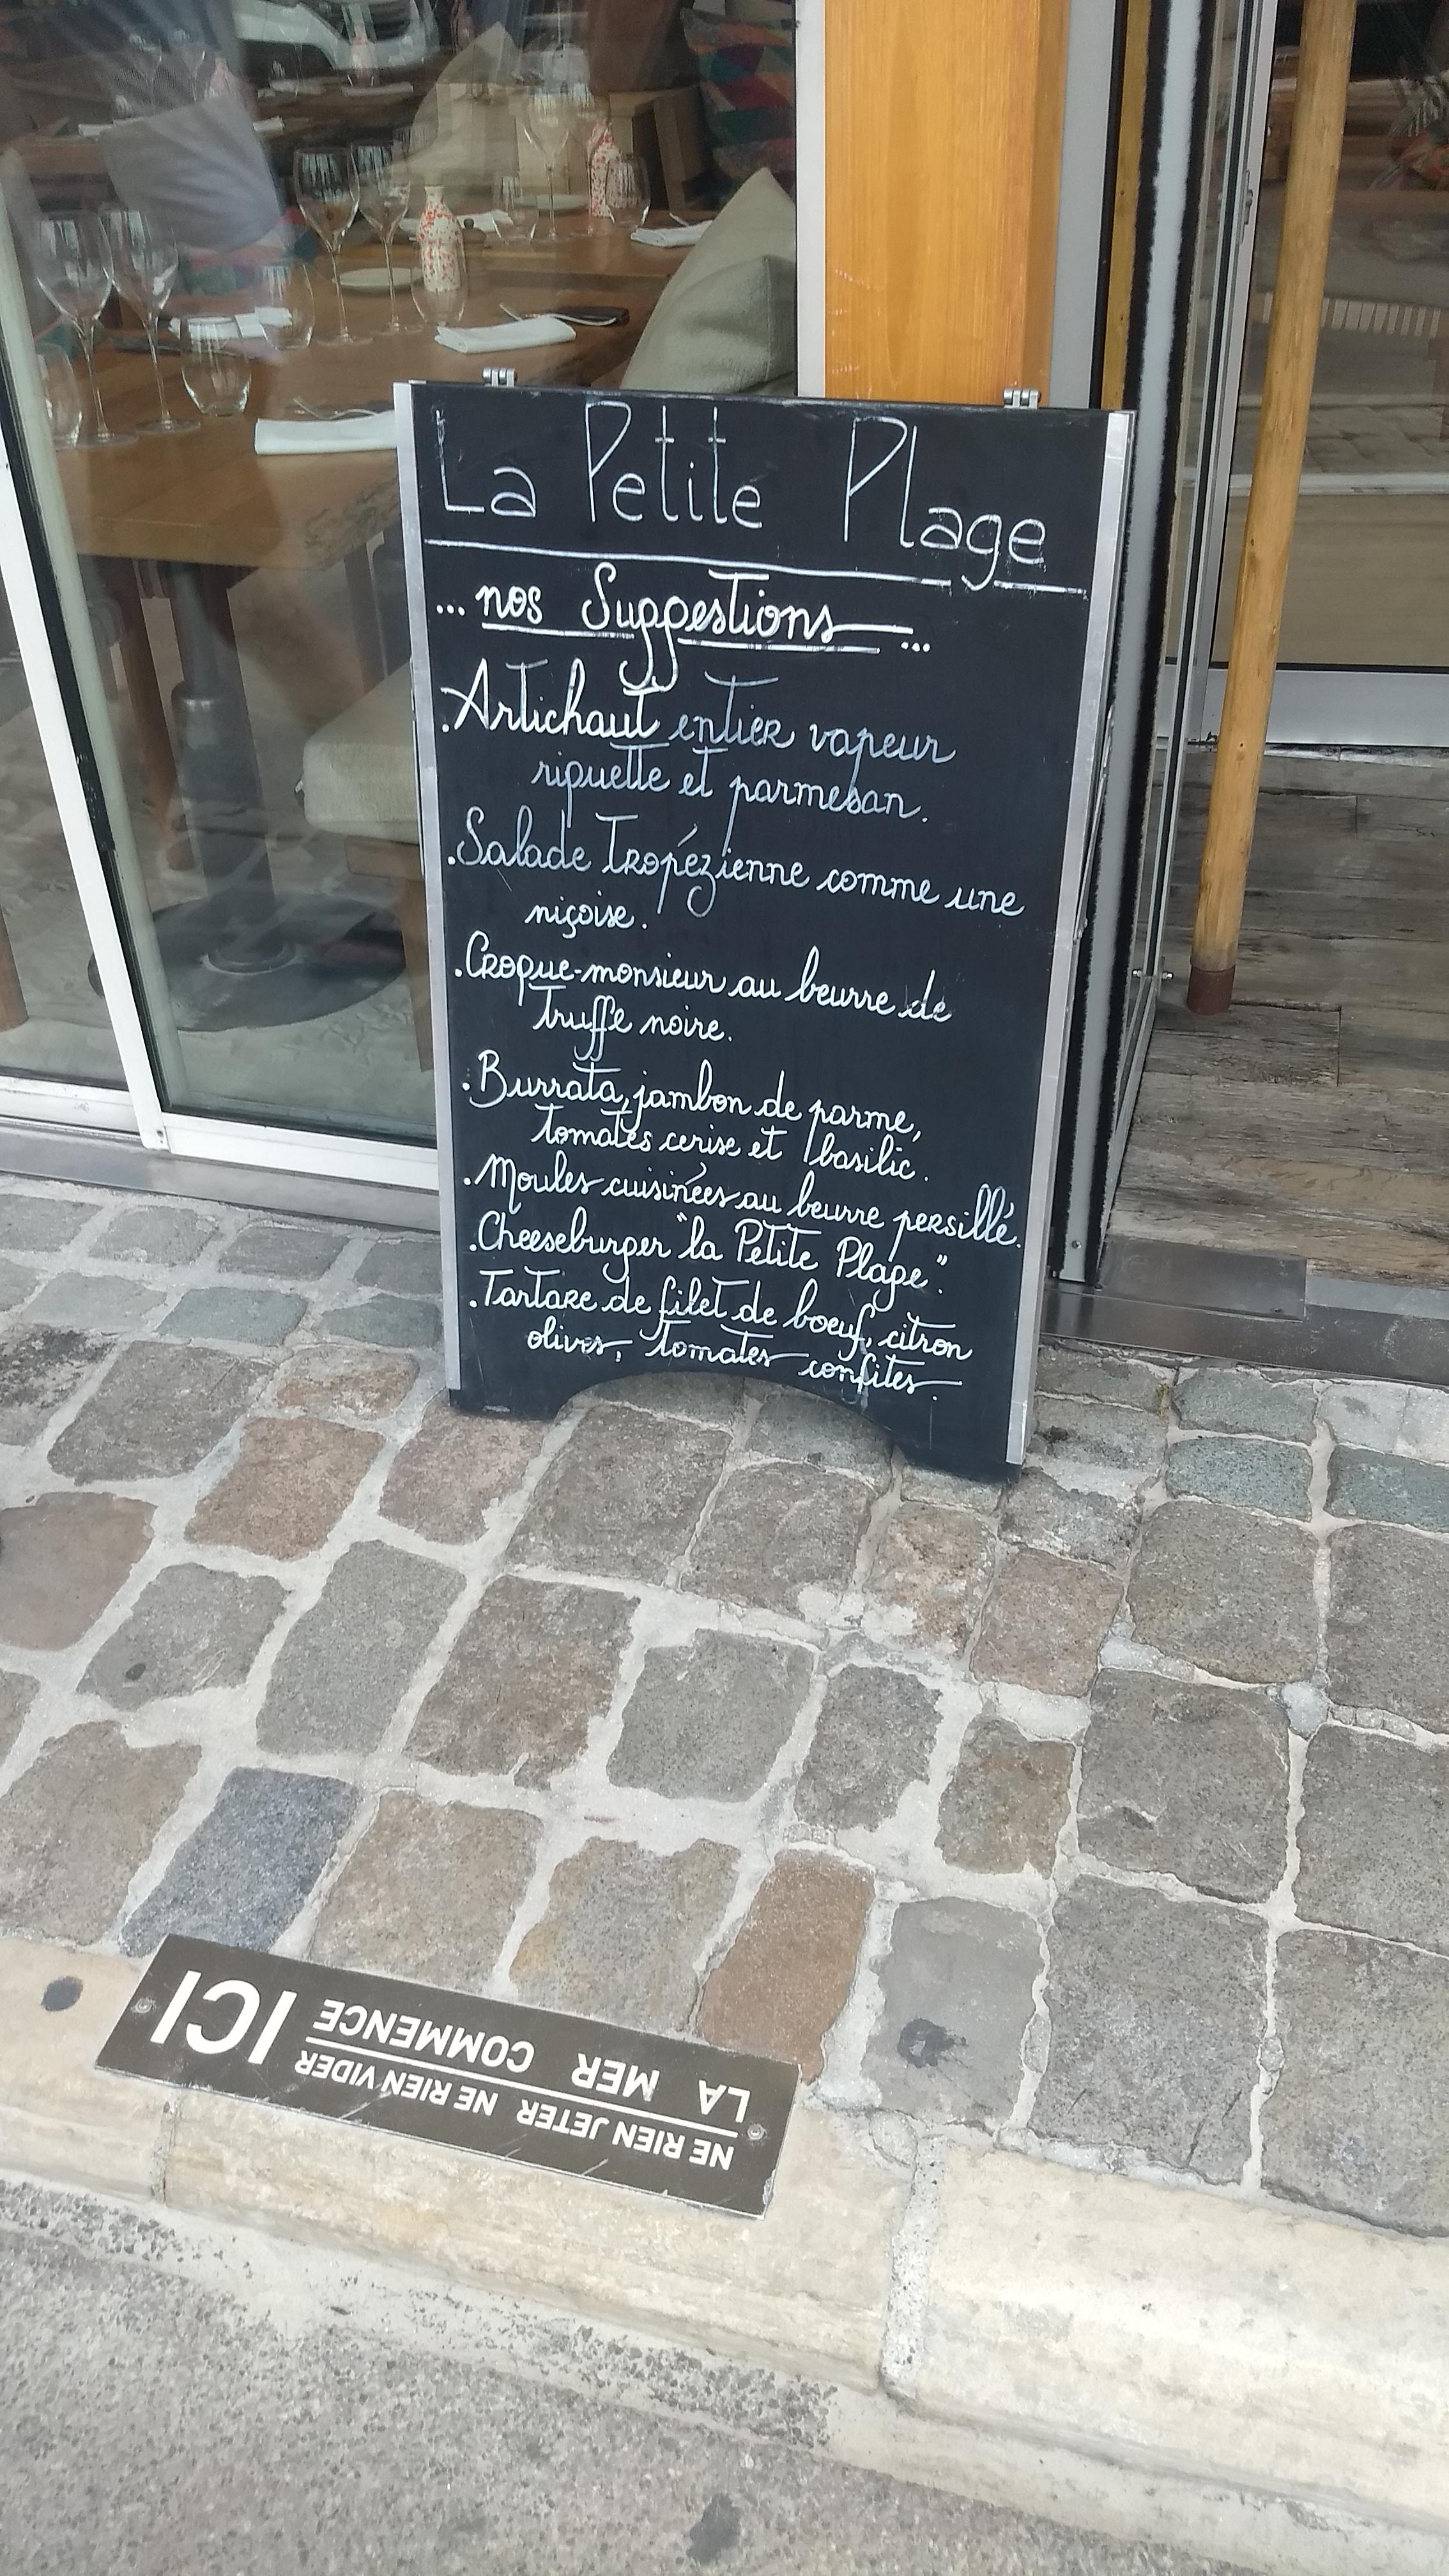 La Petite Plage
... nos Suggestions ...
. Artichaut entier vapeur
riquette et parmesan.
. Salade Tropézienne comme une
niçoise.
. Croque-monsieur au beurre de
truffe noire.
. Burrata, jambon de parme,
tomates cerise et basilic.
. Moules cuisinées au beurre persillé.
. Cheeseburger "la Petite Plage".
. Tartare de filet de boeuf, citron
olives, tomates confites.
NE RIEN JETER NE RIEN VIDER
LA MER COMMENCE
ICI